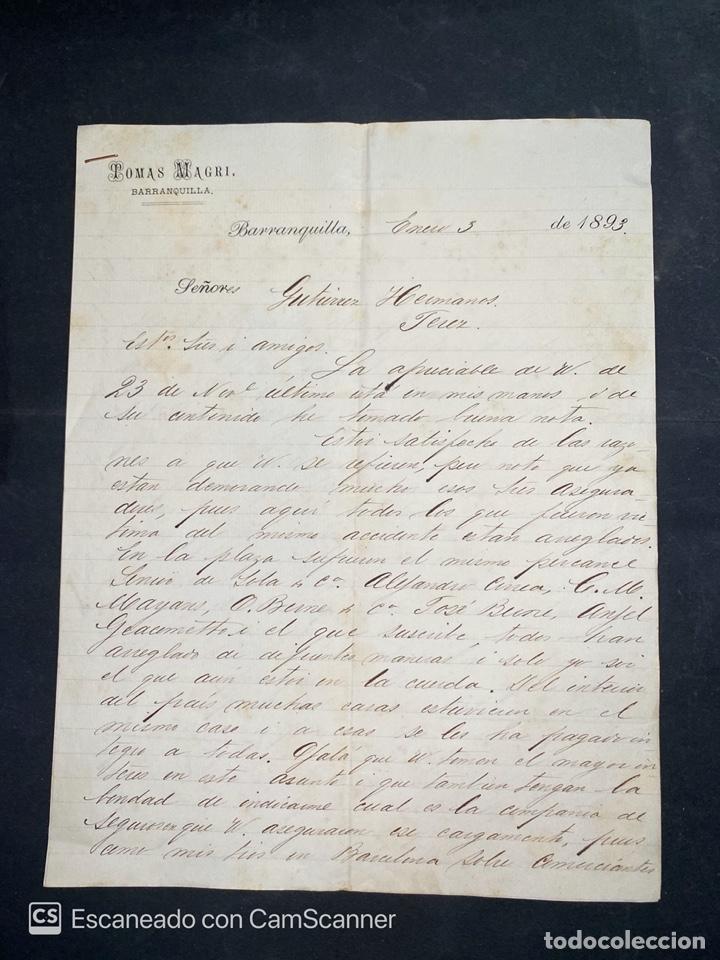 TOMAS MAGRI.
BARRANQUILLA.
Barranquilla, Enero 3 de 1893.
Señores Gutierrez Hermanos.
Jerez.
Est.os Srs i amigos.
La apreciable de W. de
23 de Nov.e último está en mis manos i de
su contenido he tomado buena nota.
Estoi satisfecho de las razo
nes a que W. se refieren, pero noto que ya
estan demorando mucho esos Srs Asegura
dores, pues aquí todos los que fueron vic
tima del mismo accidente estan arreglados.
En la plaza sufrieron el mismo percance
Senior de Sola & Ca. Alejandro C. M.
Mayans, O. Berne & Ca. José Anjel
Giacometto i el que suscribe, todos han
arreglado de diferentes maneras i solo yo soi
el que aún estoi en la cuerda. Del interior
del país muchas casas estuvieron en el
mismo caso i a esas se les ha pagado in
tegro a todas. Ojalá que W. tomen el mayor in
teres en este asunto i que tambien tengan la
bondad de indicarme cual es la compañia de
seguros en que W. aseguraron ese cargamento, pues
como mis tios en Barcelona sobre comerciantes
CS Escaneado con CamScanner
todocoleccion